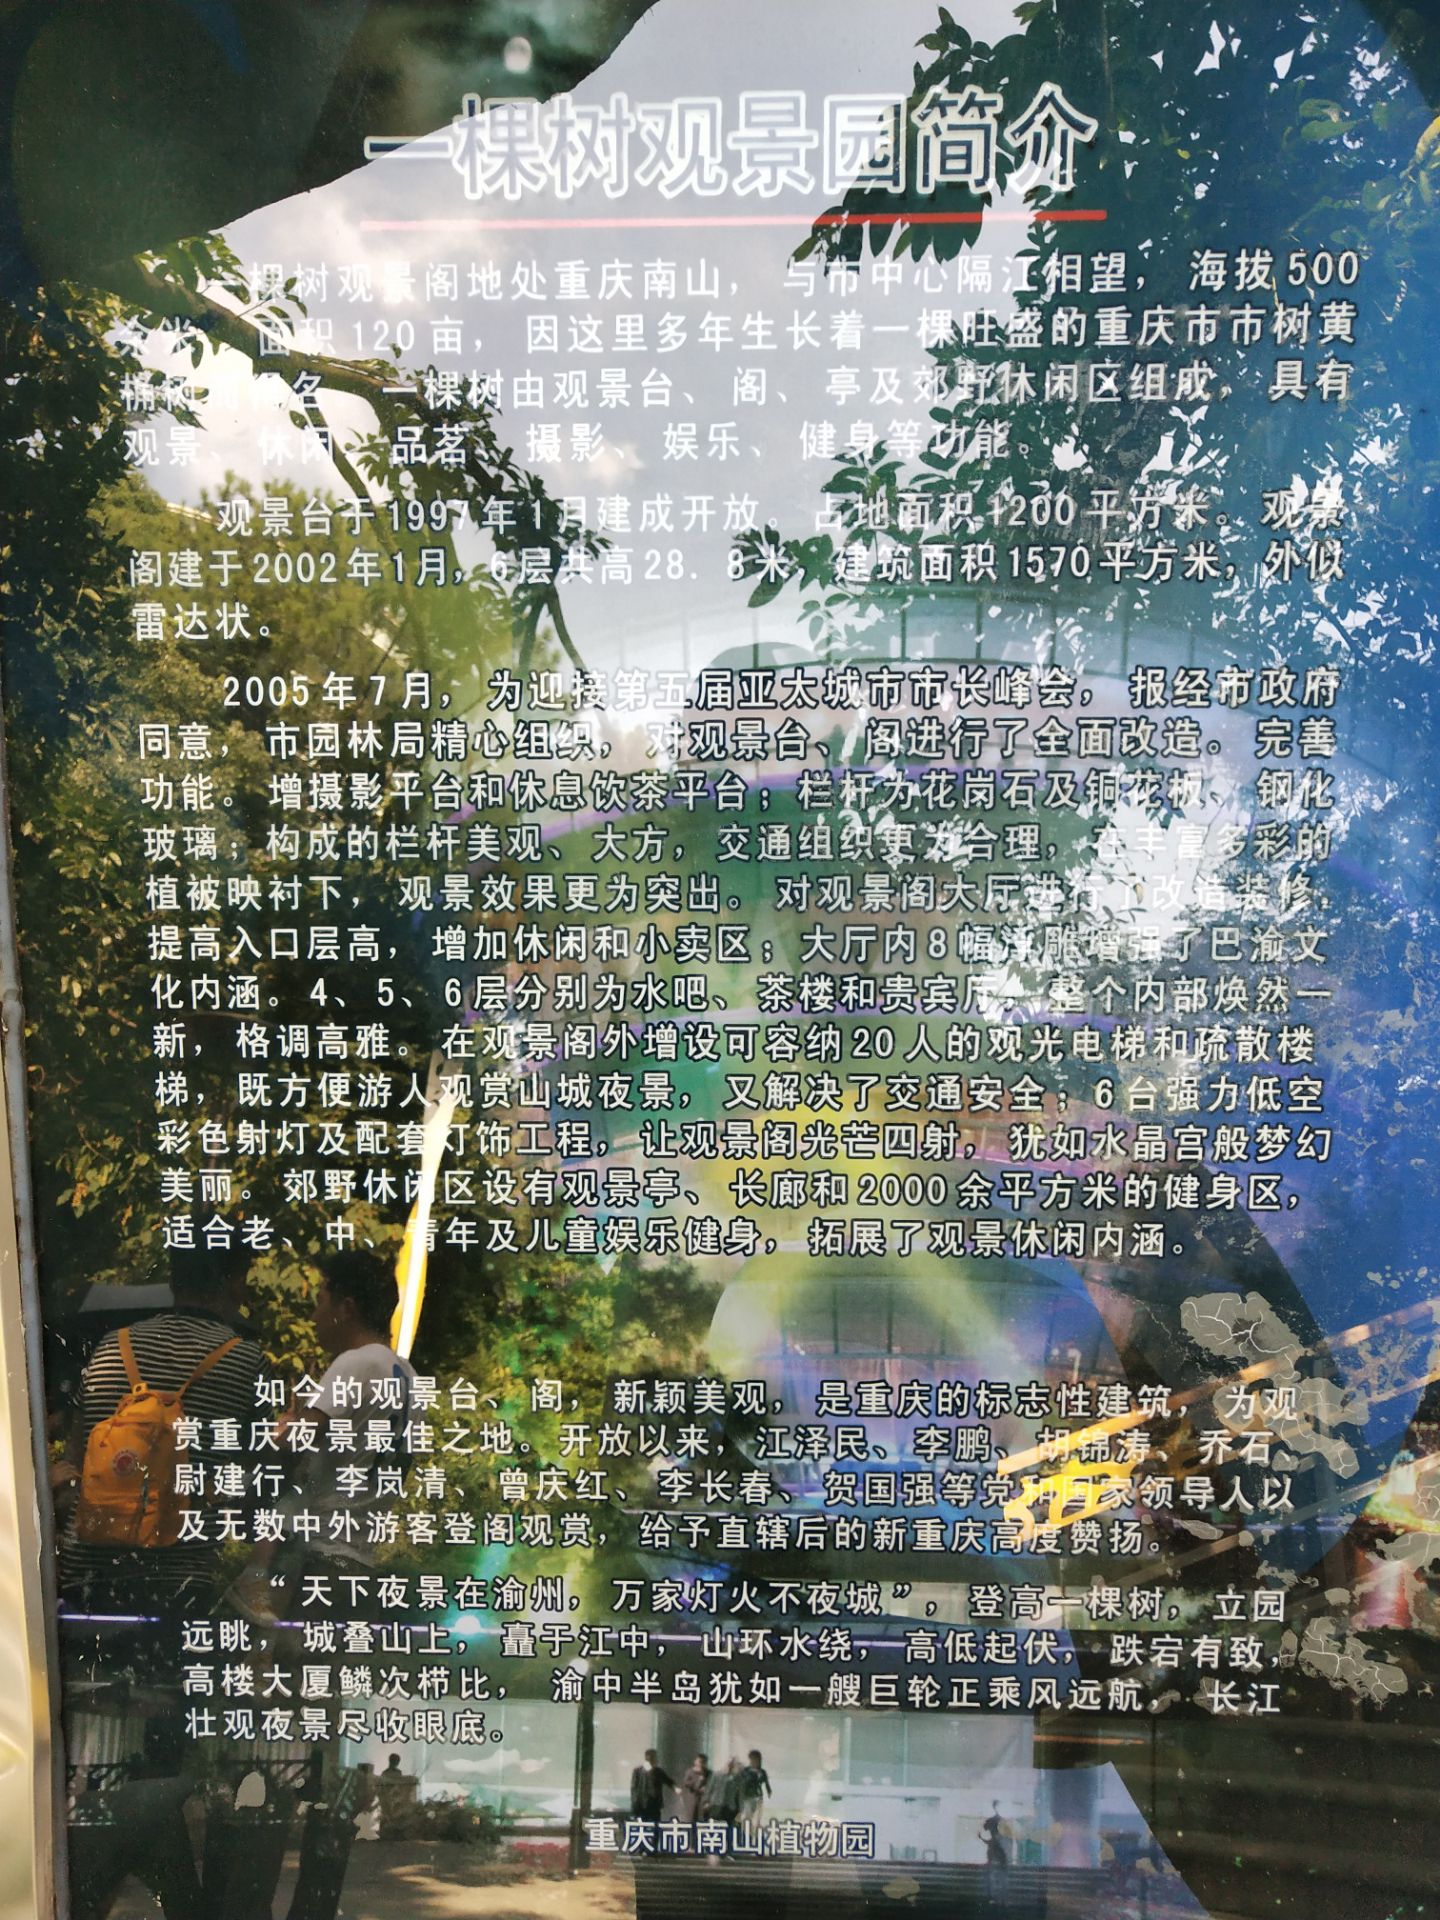 一棵树观景园简介
一棵树观景阁地处重庆南山，与市中心隔江相望，海拔500
余米，面积120亩，因这里多年生长着一棵旺盛的重庆市市树黄
桷树而得名。一棵树由观景台、阁、亭及郊野休闲区组成，具有
观景、休闲、品茗、摄影、娱乐、健身等功能。
观景台于1997年1月建成开放。占地面积1200平方米。观景
阁建于2002年1月，6层共高28.8米，建筑面积1570平方米，外似
雷达状。
2005年7月，为迎接第五届亚太城市市长峰会，报经市政府
同意，市园林局精心组织，对观景台、阁进行了全面改造。完善
功能。增摄影平台和休息饮茶平台；栏杆为花岗石及铜花板、钢化
玻璃；构成的栏杆美观、大方，交通组织更为合理，在丰富多彩的
植被映衬下，观景效果更为突出。对观景阁大厅进行了改造装修，
提高入口层高，增加休闲和小卖区；大厅内8幅浮雕增强了巴渝文
化内涵。4、5、6层分别为水吧、茶楼和贵宾厅，整个内部焕然一
新，格调高雅。在观景阁外增设可容纳20人的观光电梯和疏散楼
梯，既方便游人观赏山城夜景，又解决了交通安全；6台强力低空
彩色射灯及配套灯饰工程，让观景阁光芒四射，犹如水晶宫般梦幻
美丽。郊野休闲区设有观景亭、长廊和2000余平方米的健身区，
适合老、中、青年及儿童娱乐健身，拓展了观景休闲内涵。
如今的观景台、阁，新颖美观，是重庆的标志性建筑，为观
赏重庆夜景最佳之地。开放以来，江泽民、李鹏、胡锦涛、乔石、
尉建行、李岚清、曾庆红、李长春、贺国强等党和国家领导人以
及无数中外游客登阁观赏，给予直辖后的新重庆高度赞扬。
“天下夜景在渝州，万家灯火不夜城”，登高一棵树，立园
远眺，城叠山上，矗于江中，山环水绕，高低起伏，跌宕有致，
高楼大厦鳞次栉比，渝中半岛犹如一艘巨轮正乘风远航，长江
壮观夜景尽收眼底。
重庆市南山植物园